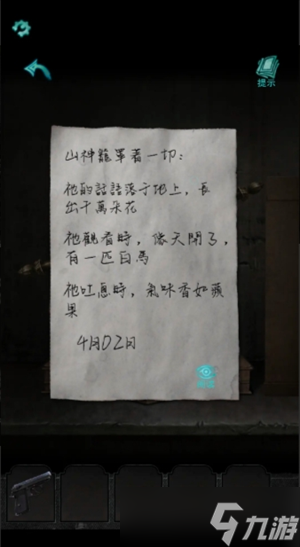 提示
山神籠罩着一切:
祂的話語落于地上，長
出千萬朵花
祂觀看時，後天開了，
有一匹白馬
祂吐息時，氣味香如蘋
果
4月02日
九游